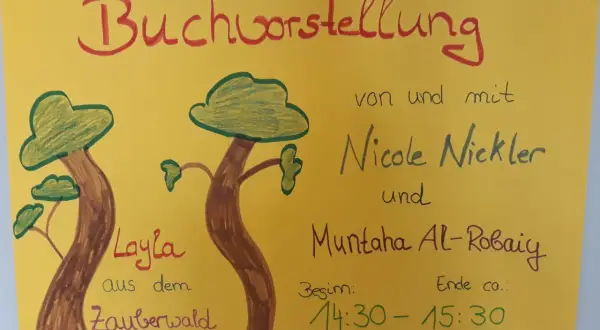 Buchvorstellung
von und mit
Nicole Nickler
und
Muntaha Al-Robaiy
Layla
aus dem
Zauberwald
Beginn: Ende ca.:
14:30 – 15:30